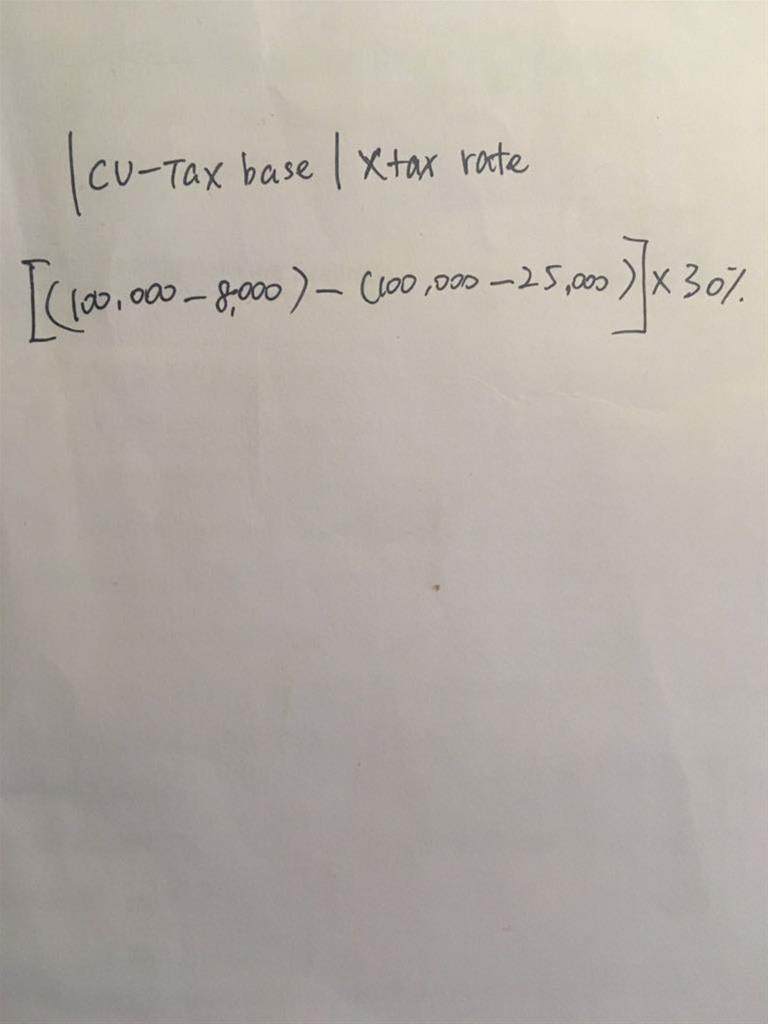 |CV-Tax base| x tax rate
[(100,000-8,000)-(100,000-25,000)]x30%